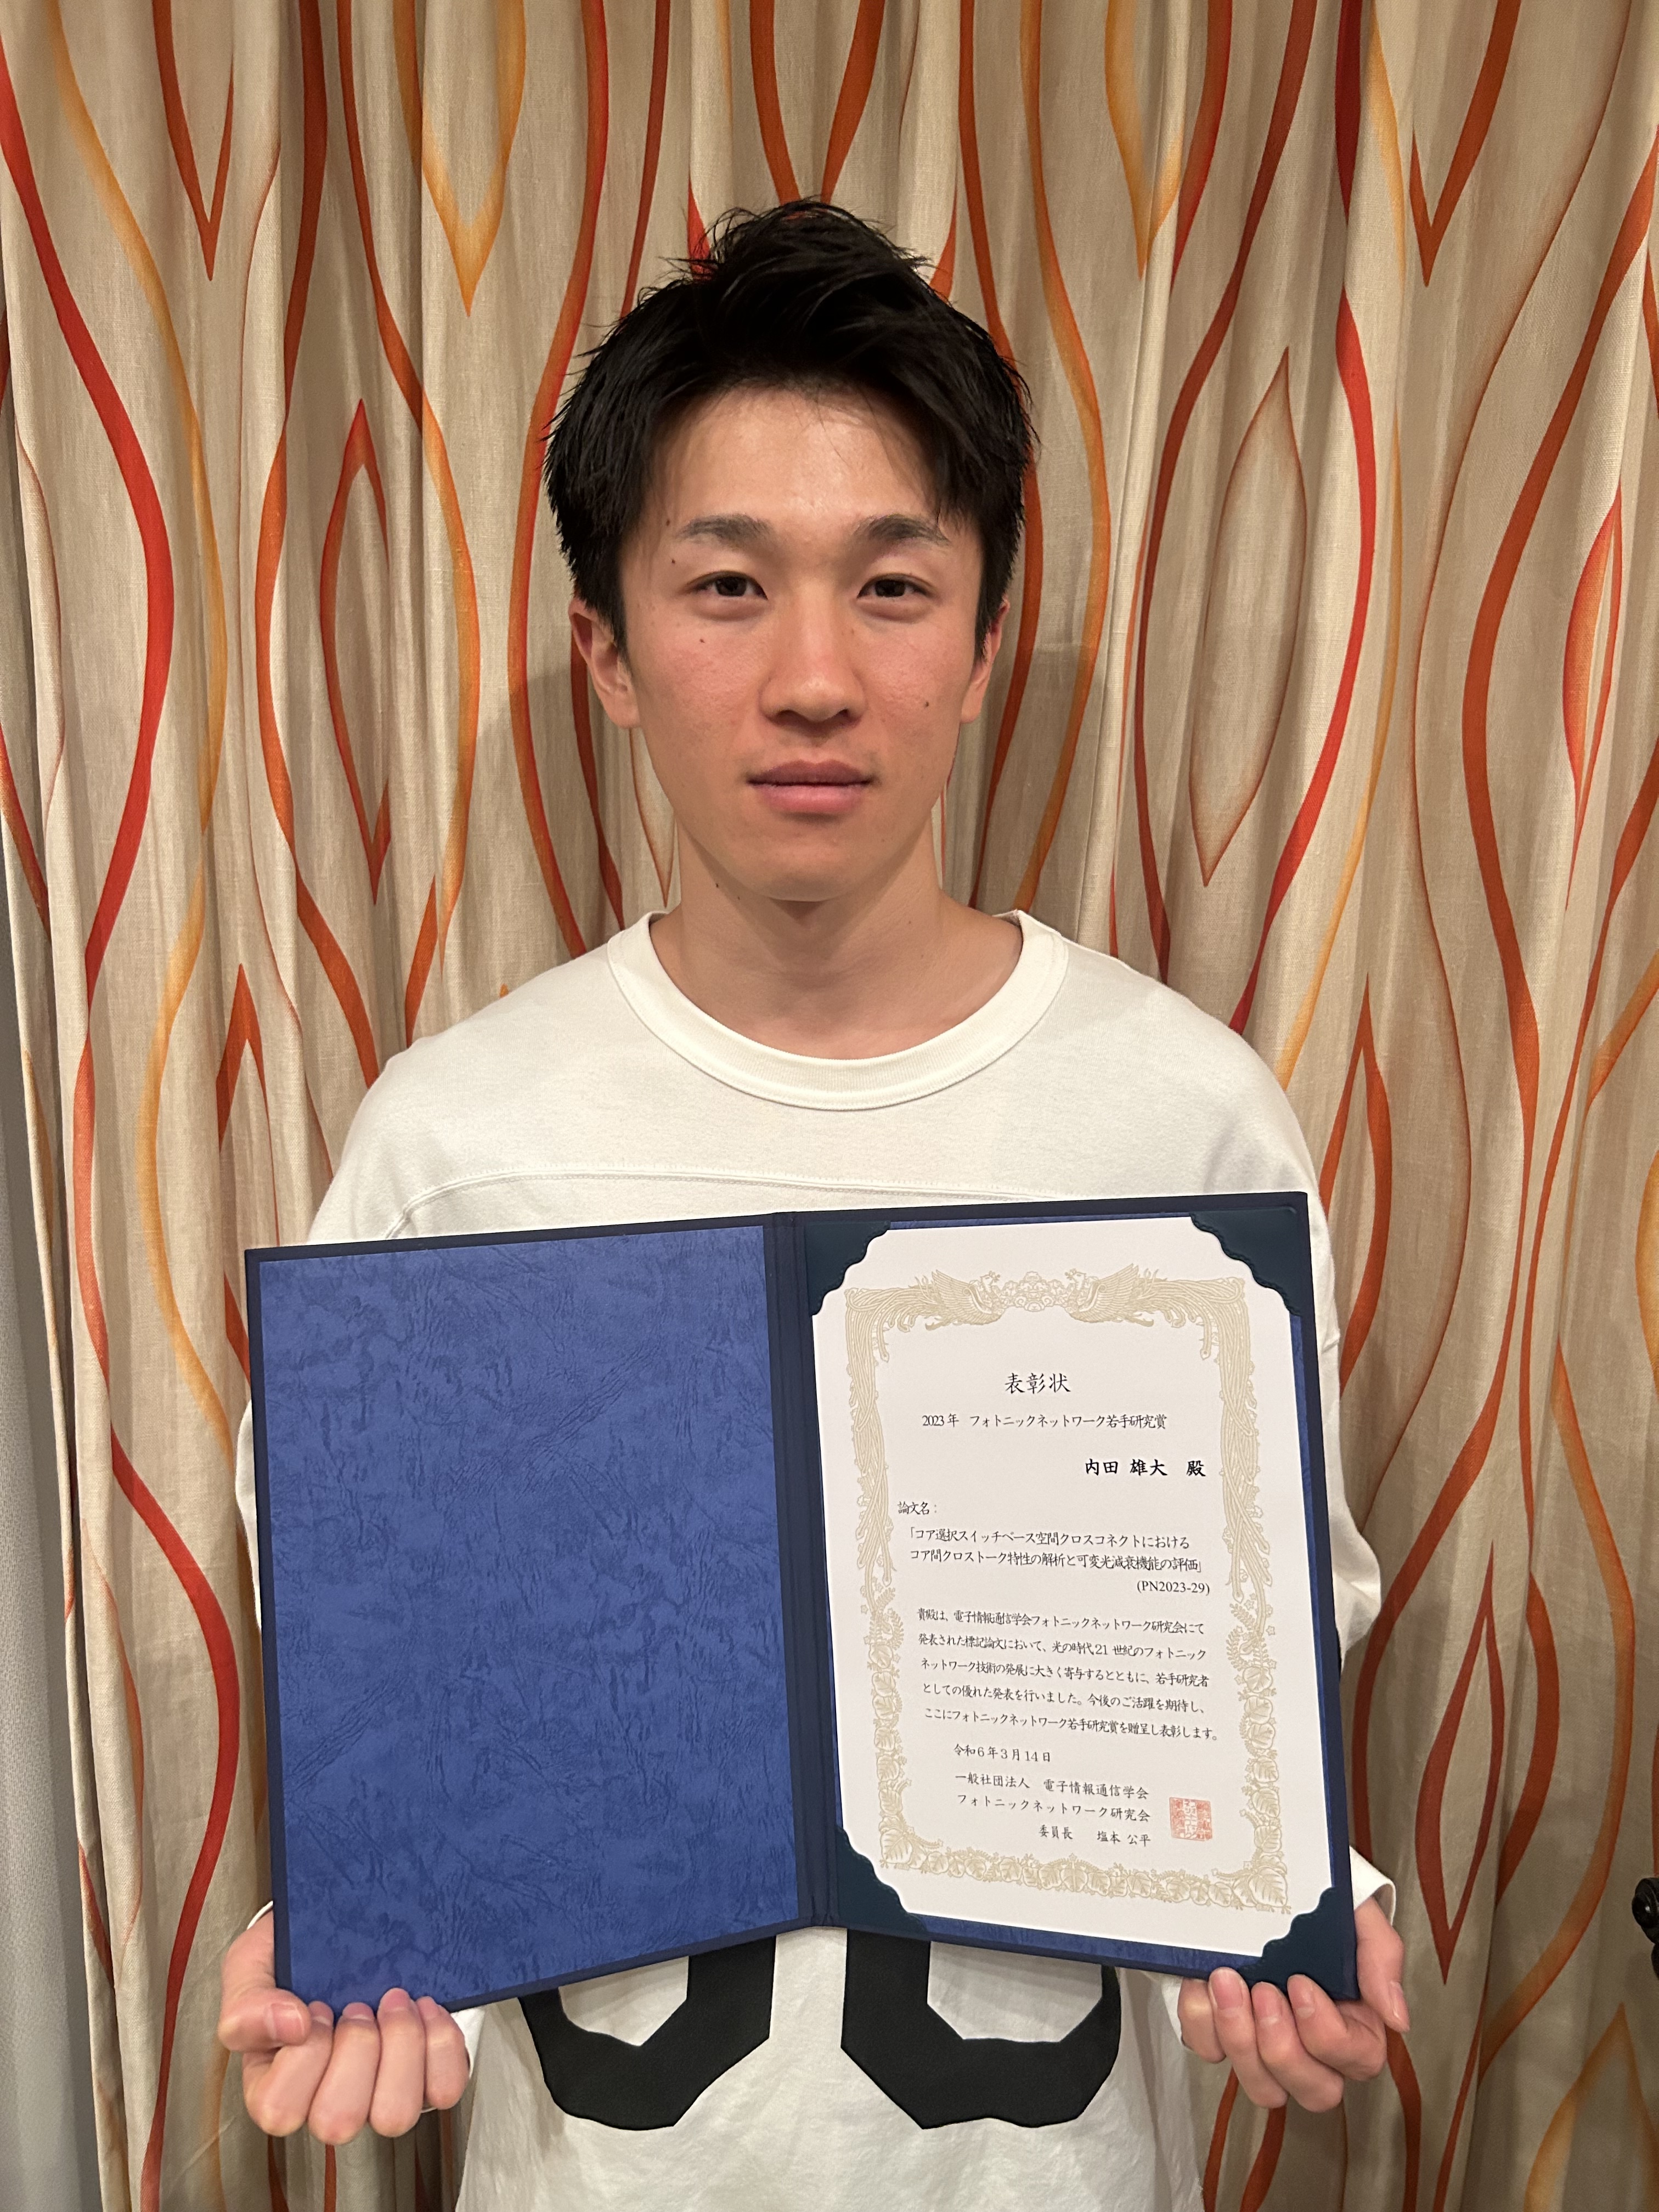 表彰状
2023年 フォトニックネットワーク若手研究賞
内田 雄大 殿
論文名：
「コア選択スイッチベース空間クロスコネクトにおける
コア間クロストーク特性の解析と可変光減衰機能の評価」
(PN2023-29)
貴殿は、電子情報通信学会フォトニックネットワーク研究会にて
発表された標記論文において、光の時代21世紀のフォトニック
ネットワーク技術の発展に大きく寄与するとともに、若手研究者
としての優れた発表を行いました。今後のご活躍を期待し、
ここにフォトニックネットワーク若手研究賞を贈呈し表彰します。
令和6年3月14日
一般社団法人 電子情報通信学会
フォトニックネットワーク研究会
委員長 塩本 公平